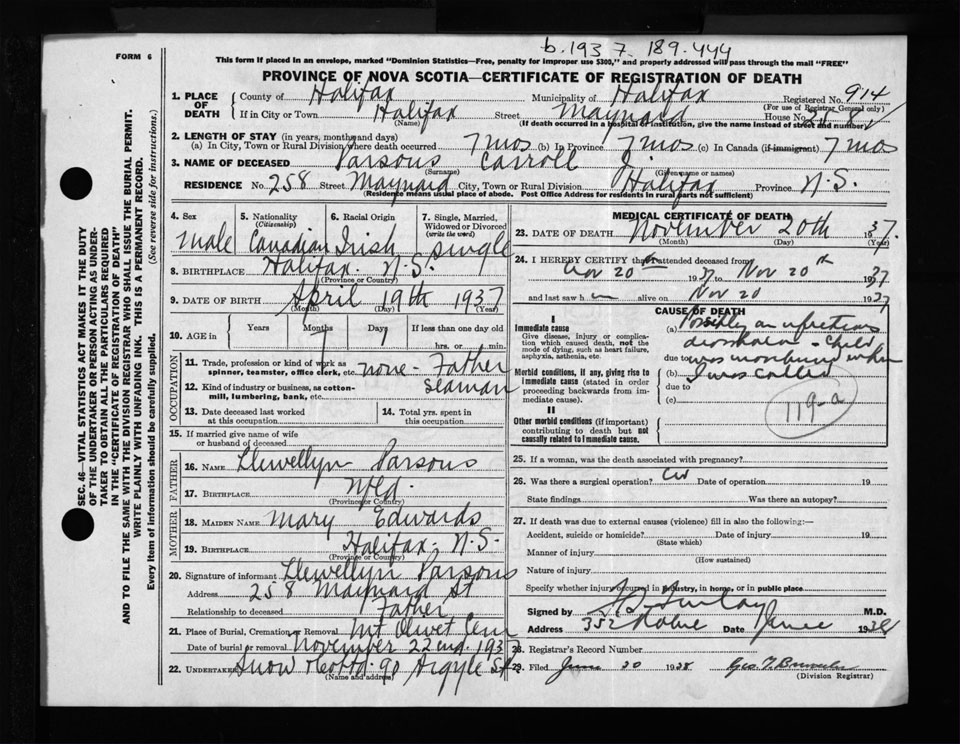 b. 1937. 189-444
FORM 6
This form if placed in an envelope, marked "Dominion Statistics—Free, penalty for improper use $300," and properly addressed will pass through the mail "FREE"
PROVINCE OF NOVA SCOTIA—CERTIFICATE OF REGISTRATION OF DEATH
1. PLACE OF DEATH County of Halifax Municipality of Halifax Registered No. 914
(For use of Registrar General only)
If in City or Town Halifax Street Maynard House No. 258
(Name) (If death occurred in a hospital or institution, give the name instead of street and number)
2. LENGTH OF STAY (in years, months and days)
(a) In City, Town or Rural Division where death occurred 7 mos (b) In Province 7 mos (c) In Canada (if immigrant) 7 mos
3. NAME OF DECEASED Parsons Carroll J.
(Surname) (Given name or names)
RESIDENCE No. 258 Street Maynard City, Town or Rural Division Halifax Province N.S.
(Residence means usual place of abode. Post Office Address for residents in rural parts not sufficient)
4. Sex Male
5. Nationality (Citizenship) Canadian
6. Racial Origin Irish
7. Single, Married, Widowed or Divorced (write the word) Single
8. BIRTHPLACE Halifax. N.S.
(Province or Country)
9. DATE OF BIRTH April 19th 1937
(Month) (Day) (Year)
10. AGE in Years Months 7 Days 1 If less than one day old
hrs. or min.
OCCUPATION
11. Trade, profession or kind of work as spinner, teamster, office clerk, etc. none - Father
12. Kind of industry or business, as cotton-mill, lumbering, bank, etc. seaman
13. Date deceased last worked at this occupation
14. Total yrs. spent in this occupation
15. If married give name of wife or husband of deceased
FATHER
16. NAME Llewellyn Parsons
17. BIRTHPLACE Nfld.
(Province or Country)
MOTHER
18. MAIDEN NAME Mary Edwards
19. BIRTHPLACE Halifax, N.S.
(Province or Country)
20. Signature of informant Llewellyn Parsons
Address 258 Maynard St
Relationship to deceased Father
21. Place of Burial, Cremation or Removal Mt Olivet Cem
Date of burial or removal November 22nd 1937
22. UNDERTAKER Snow & Co 90 Argyle St
(Name and address)
MEDICAL CERTIFICATE OF DEATH
23. DATE OF DEATH November 20th 1937.
(Month) (Day) (Year)
24. I HEREBY CERTIFY that I attended deceased from
Nov 20th 1937 Nov 20th 1937
and last saw h im alive on Nov 20 1937
CAUSE OF DEATH
I
Immediate cause
Give disease, injury or complication which caused death, not the mode of dying, such as heart failure, asphyxia, asthenia, etc.
(a) Possibly an infectious diarrhoea - child
due to was moribund when
Morbid conditions, if any, giving rise to immediate cause (stated in order proceeding backwards from immediate cause).
(b) I was called
due to
(c)
119-a
II
Other morbid conditions (if important) contributing to death but not causally related to immediate cause.
25. If a woman, was the death associated with pregnancy?
26. Was there a surgical operation? Date of operation 19
State findings Was there an autopsy?
27. If death was due to external causes (violence) fill in also the following:—
Accident, suicide or homicide? Date of injury 19
(State which)
Manner of injury
(How sustained)
Nature of injury
Specify whether injury occurred in industry, in home, or in public place
Signed by M.D.
Address 352 Robie Date June 1938
28. Registrar's Record Number
29. Filed June 20 1938
(Division Registrar)
SEC. 46—VITAL STATISTICS ACT MAKES IT THE DUTY
OF THE UNDERTAKER OR PERSON ACTING AS UNDER-
TAKER TO OBTAIN ALL THE PARTICULARS REQUIRED
IN THE "CERTIFICATE OF REGISTRATION OF DEATH"
AND TO FILE THE SAME WITH THE DIVISION REGISTRAR WHO SHALL ISSUE THE BURIAL PERMIT.
WRITE PLAINLY WITH UNFADING INK. THIS IS A PERMANENT RECORD.
Every item of information should be carefully supplied. (See reverse side for instructions.)